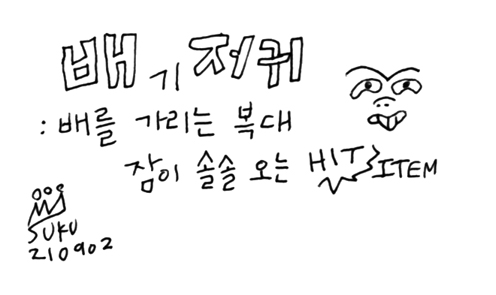 배기저귀
: 배를 가리는 복대
잠이 솔솔 오는 HIT ITEM
SUKU
210902